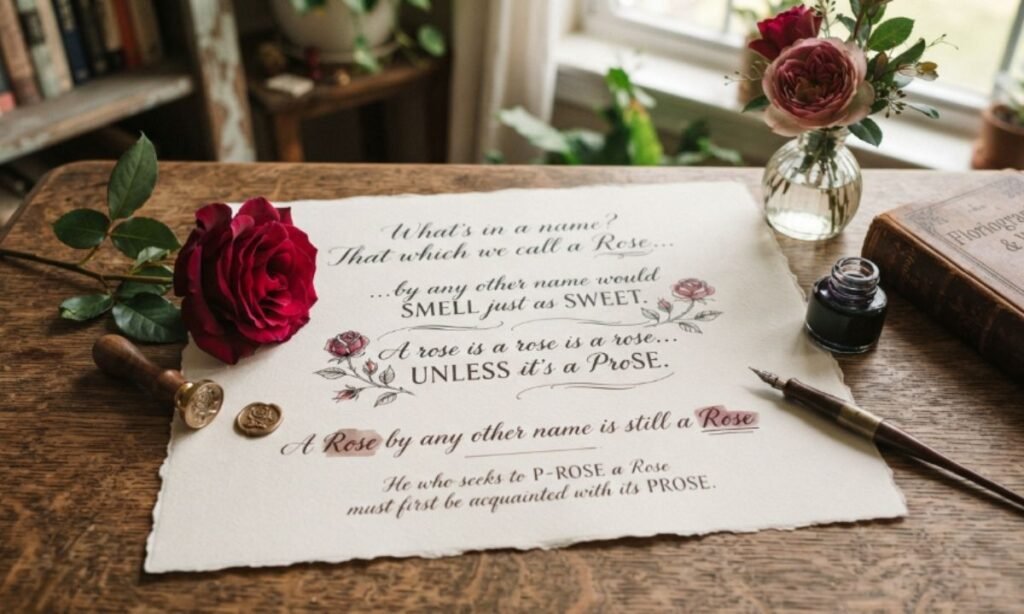 What's in a name?
That which we call a Rose...
...by any other name would
SMELL just as SWEET.
A rose is a rose is a rose...
UNLESS it's a ProSE.
A Rose by any other name is still a Rose
He who seeks to P-ROSE a Rose
must first be acquainted with its PROSE.
&